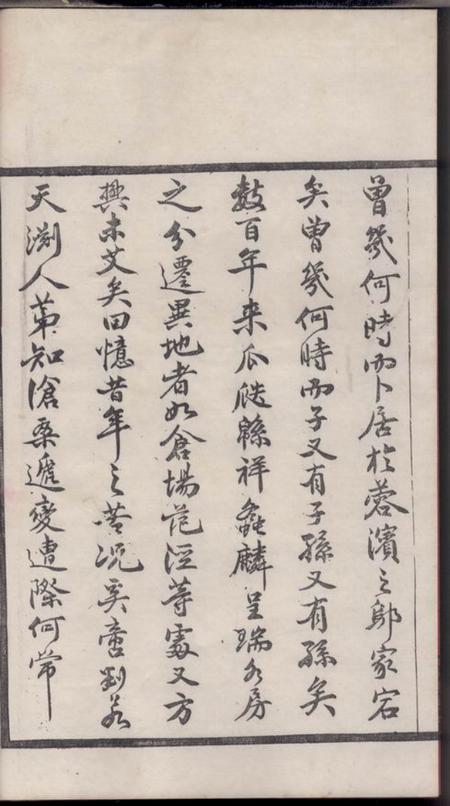 曾幾何時而卜居於蓉濱之鄔家宕
矣曾幾何時而子又有子孫又有孫矣
數百年来瓜瓞緜祥螽麟呈瑞各房
之分遷異地者如倉場范涇等處又方
興未艾矣回憶昔年之苦况奚啻判若
天淵人第知滄桑遞變遭際何常